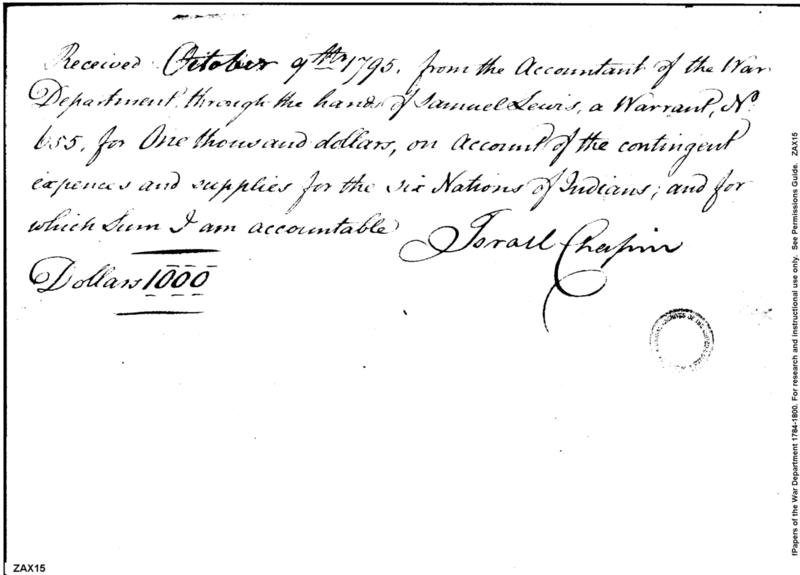 Received October 9th 1795. from the Accountant of the War
Department, through the hands of Samuel Lewis, a Warrant, No
655, for One thousand dollars, on Account of the contingent
expences and supplies for the six Nations of Indians; and for
which Sum I am accountable
Israel Chapin
Dollars 1000
ZAX15
fPapers of the War Department 1784-1800. For research and instructional use only. See Permissions Guide. ZAX15